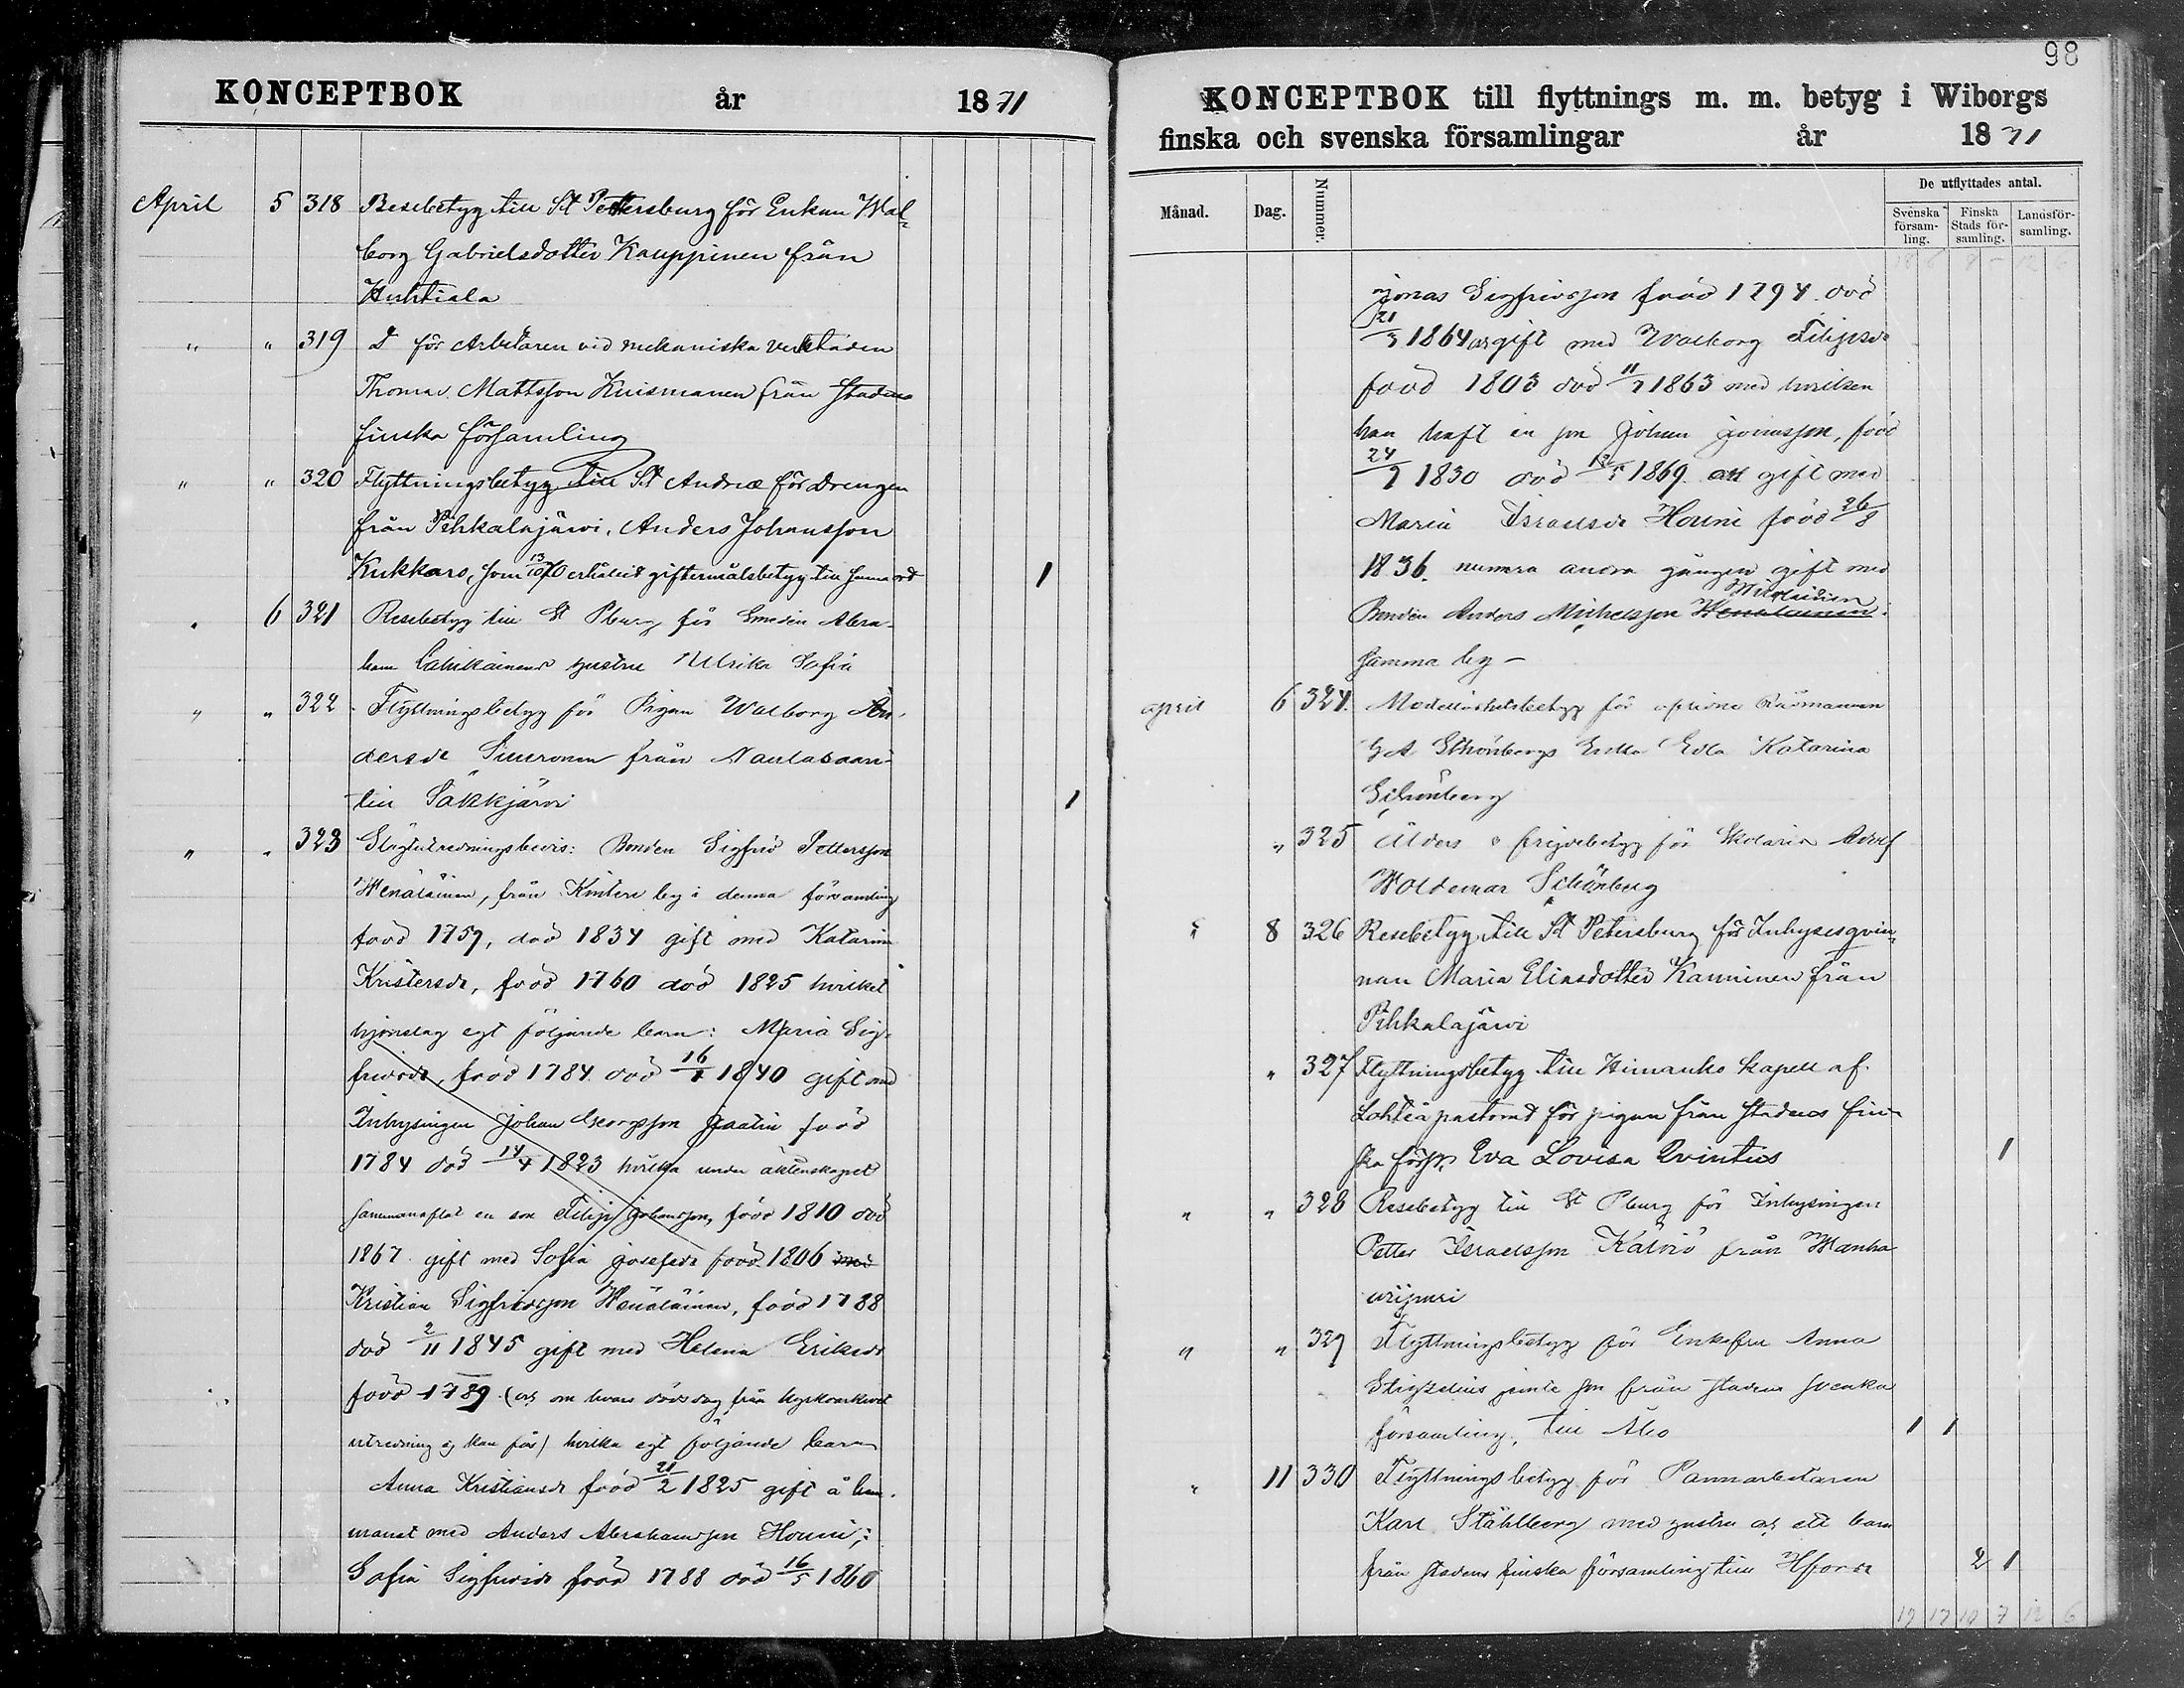 KONCEPTBOK år 1871
April 5 318 Resebetyg till St Pettersburg för Enkan Wal-
borg Gabrielsdotter Kauppinen från
Huhtiala
" " 319 D för Arbetaren vid mekaniska verkstaden
Thomas Mattsson Kuismanen från stadens
finska församling
" " 320 Flyttningsbetyg till St Andreæ för Drengen
från Pihkalajärvi, Anders Johansson
Kukkaro, som 13/10 70 erhållit giftermålsbetyg till samma ort 1
" 6 321 Resebetyg till St Pburg för Smeden Abra-
ham hustru Ulrika Sofia
" " 322 Flyttningsbetyg för Pigan Walborg An-
dersdr från Nautasaari
till Säkkjärvi 1
" " 323 Slägtutredningsbevis: Bonden Sigfrid Pettersson
Wenäläinen, från Kintere by i denna församling
född 1757, död 1834 gift med Katarina
Kristersdr, född 1760 död 1825 hvilket
hjonelag egt följande barn: Maria Sig-
fridsdr, född 1784 död 16/4 1840 gift med
Inhysingen Johan Georgsson född
1784 död 14/4 1823 hvilka under äktenskapet
sammanaflat en son Filip Johansson, född 1810 död
1867 gift med Sofia Josefsdr född 1806 med
Kristian Sigfridsson Wenäläinen, född 1788
död 2/11 1845 gift med Helena Eriksdr
född 1789 (och om hvars dödsdag från kyrkoarkivet
utredning ej kan fås) hvilka egt följande barn
Anna Kristiansdr född 21/2 1825 gift å hem-
manet med Anders Abrahamsson Houni;
Sofia Sigfridsdr född 1788 död 16/5 1860
98
KONCEPTBOK till flyttnings m. m. betyg i Wiborgs
finska och svenska församlingar år 1871
Månad. Dag. Nummer. De utflyttades antal.
Svenska församling. Finska Stads församling. Landsförsamling.
Jonas Sigfridsson född 1794 död
21/3 1864 och gift med Walborg Filipsdr
född 1803 död 11/7 1863 med hvilken
han haft en son Johan Jonasson, född
24/7 1830 död 12/5 1869. och gift med
Maria Israelsdr Houni född 26/8
1836. numera andra gången gift med
Bonden Anders Michelsson Wenäläinen
samma by -
april 6 324. Medellöshetsbetyg för aflidne Rådmannen
G A Schönbergs Enka Edla Katarina
Schönberg
" 325 Ålders o frejdebetyg för Skolaren Adolf
Woldemar Schönberg
" 8 326 Resebetyg till St Petersburg för Inhysesqvin-
nan Maria Eliasdotter Kanninen från
Pihkalajärvi
" 327 Flyttningsbetyg till Himanko kapell af
Lohteå pastorat för pigan från stadens fin-
ska förs. Eva Lovisa Qvintus 1
" " 328 Resebetyg till St Pburg för Inhysingen
Petter Israelsson från Wanha
" " 329 Flyttningsbetyg för Enkefru Anna
Stigzelius jemte son från stadens svenska
församling, till Åbo 1 1
" 11 330 Flyttningsbetyg för Pannarbetaren
Karl Ståhlberg med hustru och ett barn
från stadens finska församling till Hfors 2 1
19 17 10 7 12 6